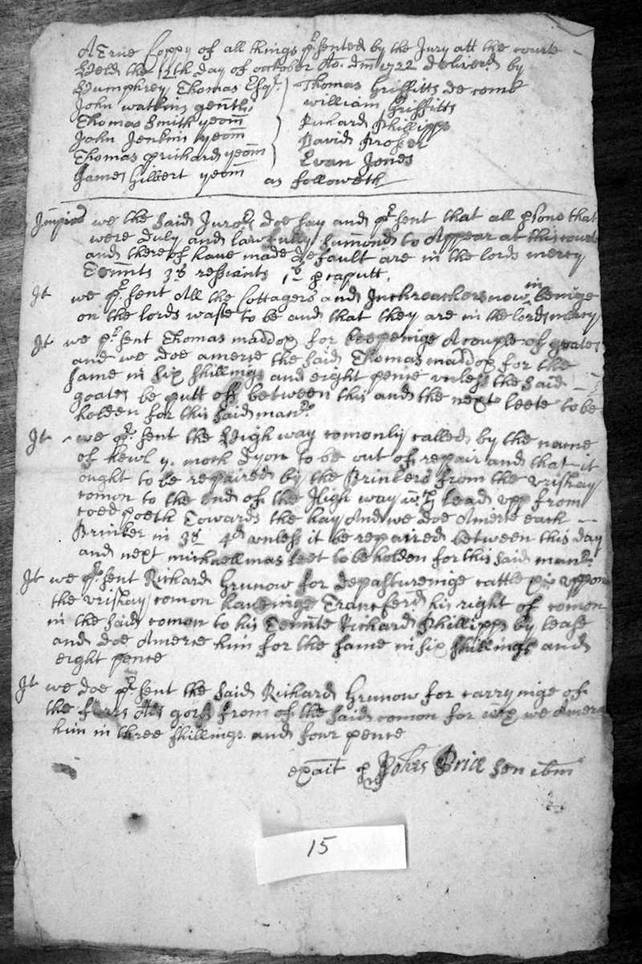 A True Coppy of all things p'sented by the Jury att the Courte
held the 12th Day of october Ao. dni 1722 deliverd by
Humphrey Thomas Esqr. Thomas Griffitts de
John watkins gentl: william Griffitts
Thomas Smith yeom Richard Phillipps
John Jenkin yeom David Prosser
Thomas prichard yeom Evan Jones
James Gilbert yeom as followeth
Imprs we the said Jurors doe say and p'sent that all psons that
were duly and lawfully sumond to Appear at this Court
and thereof have made default are in the lords mercy
Tennts 3s resiants 1s p caputt.
It we p'sent All the Cottagers and Inchroachers now in beinge
on the lords waste to be and that they are in the lords mercy
It we p'sent Thomas maddox for keepeinge A couple of goates
and we doe amerse the said Thomas maddox for the
same in six shillings and eight pence unless the said
goates be putt off between this and the next leete to be
holden for this said manr.
It we p'sent the High way comonly called by the name
of hewl y moch to be out of repair and that it
ought to be repaired by the Brinkers from the
comon to the End of the High way wch leads upp from
Coed poeth Towards the hay And we doe Amerse each
Brinker in 3s 4d unless it be repaired between this day
and next michaellmas leet to be holden for this said manr.
It we p'sent Richard Grunow for depastureinge cattle uppon
the comon haveinge Transferd his right of comon
in the said comon to his Tennte Richard Phillipps by lease
and doe Amerse him for the same in six shillings and
eight pence
It we doe p'sent the said Richard Grunow for carryinge of
the from of the said comon for wch we Amerse
him in three shillings and four pence
exait p Johes Price Sen ibm
15